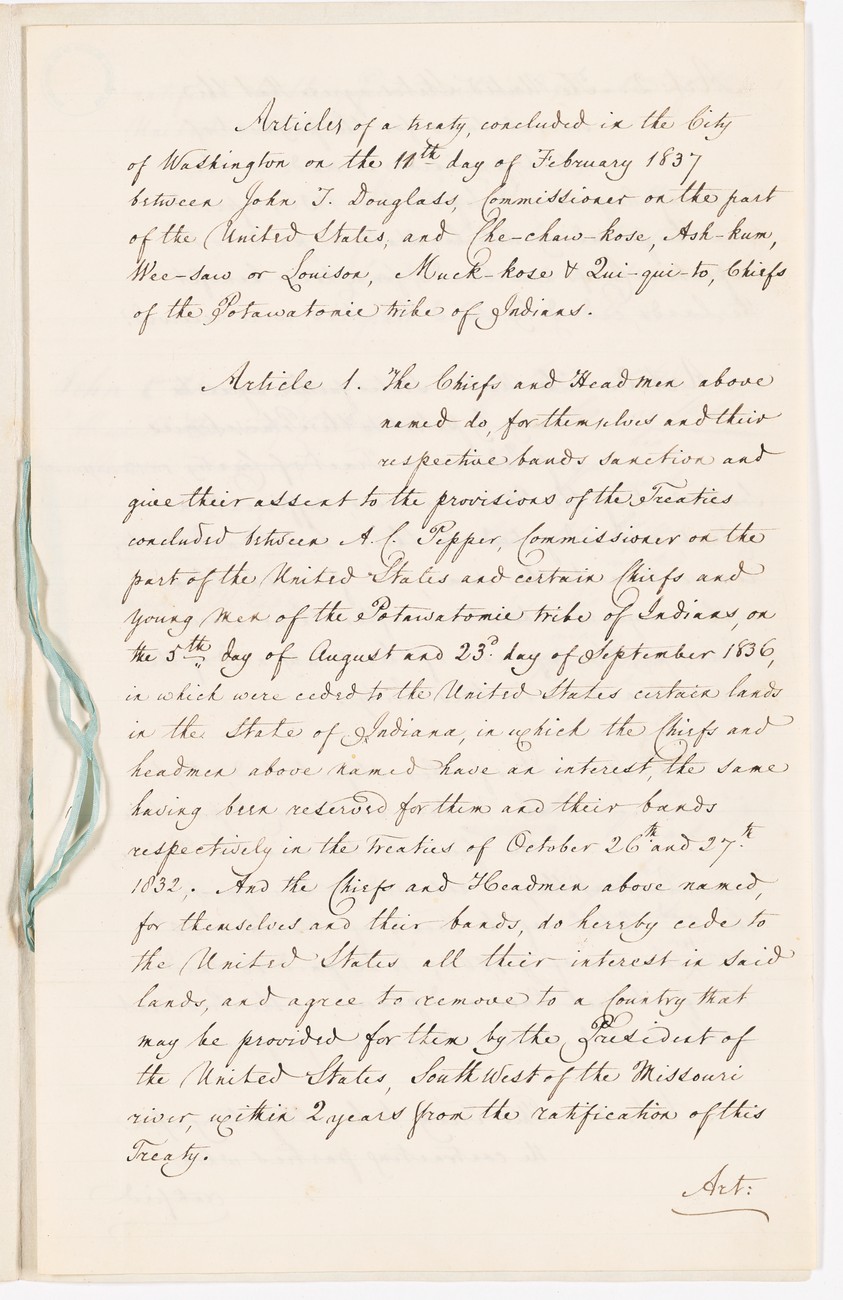 Articles of a treaty, concluded in the City
of Washington on the 11th day of February 1837
between John T. Douglass, Commissioner on the part
of the United States, and Che-chaw-kose, Ash-kum,
Wee-saw or Louison, Muck-kose & Qui-qui-to, Chiefs
of the Potawatomie tribe of Indians.
Article 1. The Chiefs and Headmen above
named do, for themselves and their
respective bands sanction and
give their assent to the provisions of the Treaties
concluded between A. C. Pepper, Commissioner on the
part of the United States and certain Chiefs and
young men of the Potawatomie tribe of Indians, on
the 5th day of August and 23d. day of September 1836,
in which were ceded to the United States certain lands
in the State of Indiana, in which the Chiefs and
headmen above named have an interest, the same
having been reserved for them and their bands
respectively in the treaties of October 26th and 27th
1832,. And the Chiefs and Headmen above named,
for themselves and their bands, do hereby cede to
the United States all their interest in said
lands, and agree to remove to a Country that
may be provided for them by the President of
the United States, South West of the Missouri
river, within 2 years from the ratification of this
Treaty.
Art: